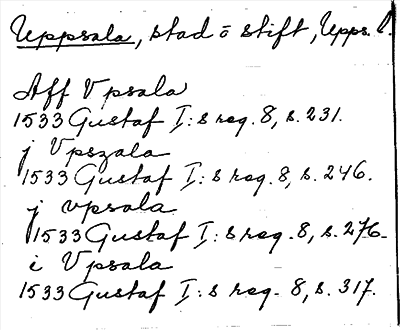 Uppsala, stad o stift, Upps. l.
Aff Vpsala
1533 Gustaf I:s reg. 8, s. 231.
j Vpszala
1533 Gustaf I:s reg. 8, s. 246.
j vpsala
1533 Gustaf I:s reg. 8, s. 276.
i Vpsala
1533 Gustaf I:s reg. 8, s. 317.